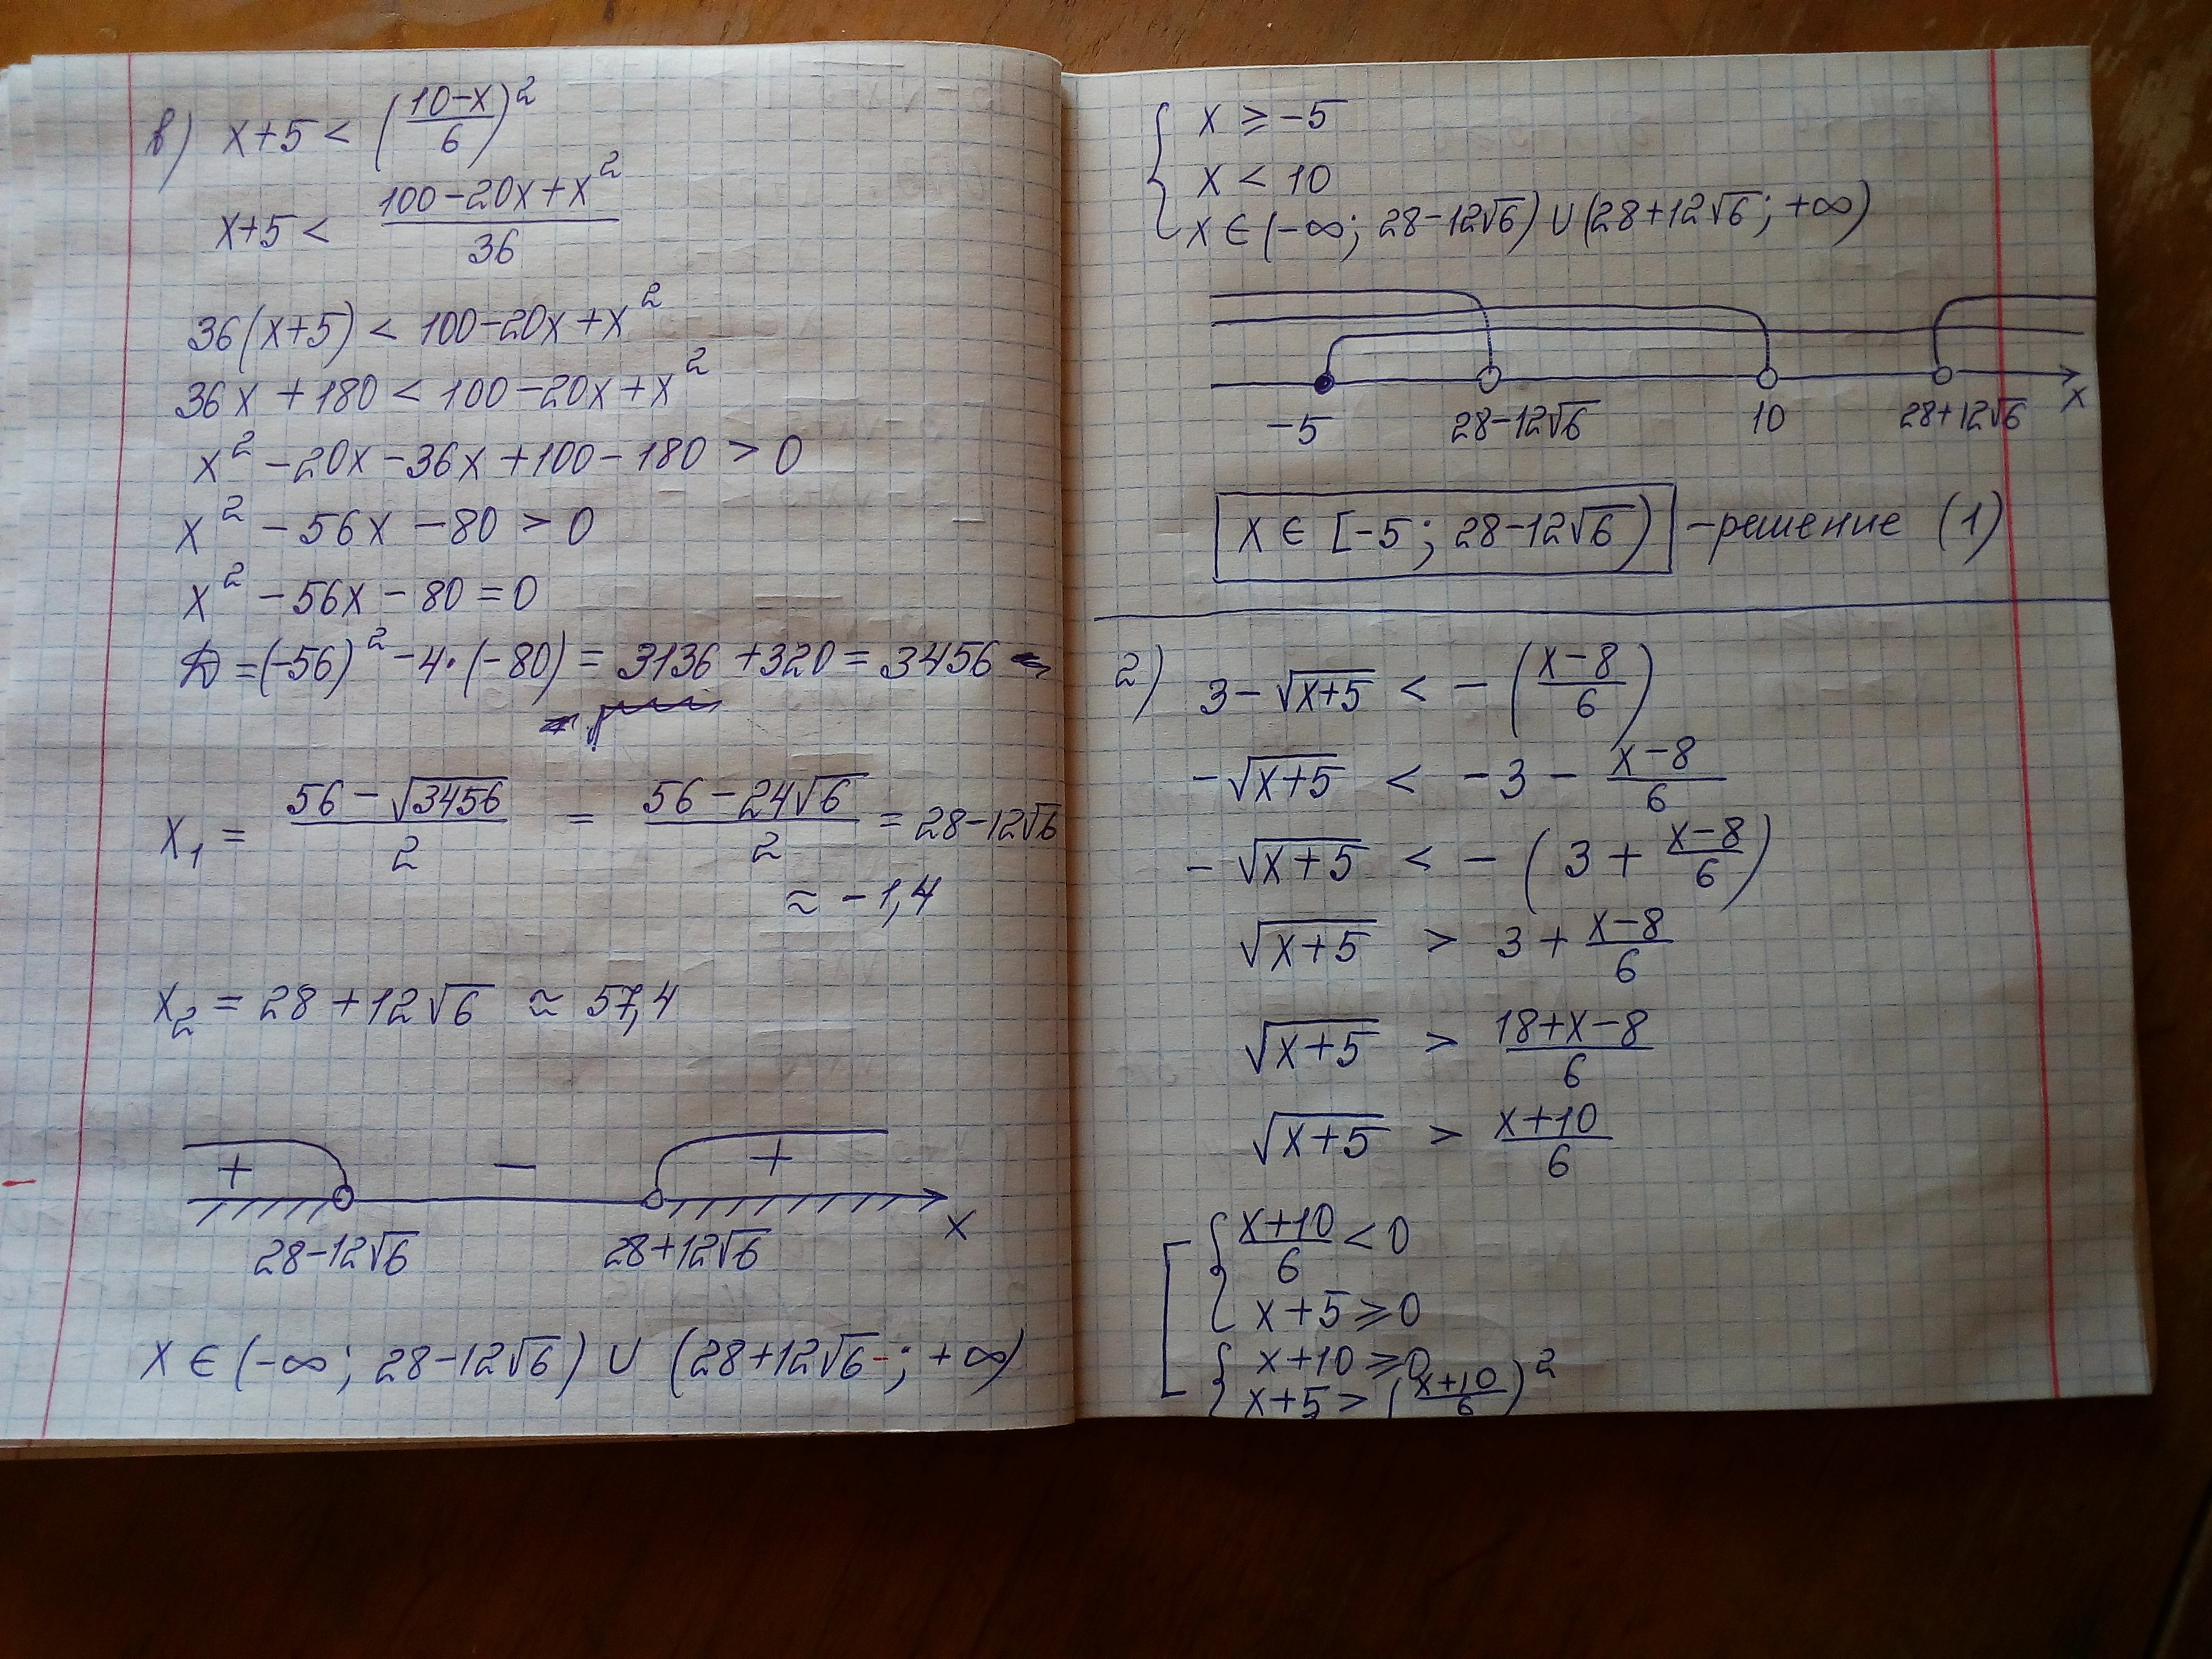 в) x+5 < ((10-x)/6)²
x+5 < (100-20x+x²)/36
36(x+5) < 100-20x+x²
36x+180 < 100-20x+x²
x²-20x-36x+100-180 > 0
x²-56x-80 > 0
x²-56x-80=0
D=(-56)²-4·(-80)=3136+320=3456
x₁ = (56-√3456)/2 = (56-24√6)/2 = 28-12√6
≈ -1,4
x₂ = 28+12√6 ≈ 57,4
+ - +
28-12√6 28+12√6 x
x ∈ (-∞; 28-12√6) ∪ (28+12√6; +∞)
{ x ⩾ -5
x < 10
x ∈ (-∞; 28-12√6) ∪ (28+12√6; +∞)
-5 28-12√6 10 28+12√6 x
x ∈ [-5; 28-12√6) - решение (1)
2) 3-√(x+5) < -((x-8)/6)
-√(x+5) < -3-(x-8)/6
-√(x+5) < -(3+(x-8)/6)
√(x+5) > 3+(x-8)/6
√(x+5) > (18+x-8)/6
√(x+5) > (x+10)/6
[ { (x+10)/6 < 0
x+5 ⩾ 0
{ x+10 ⩾ 0
x+5 > ((x+10)/6)²